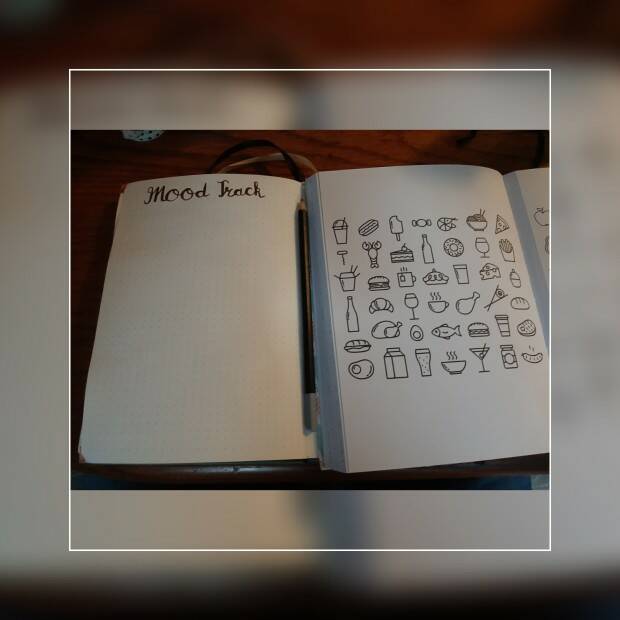 Mood Track